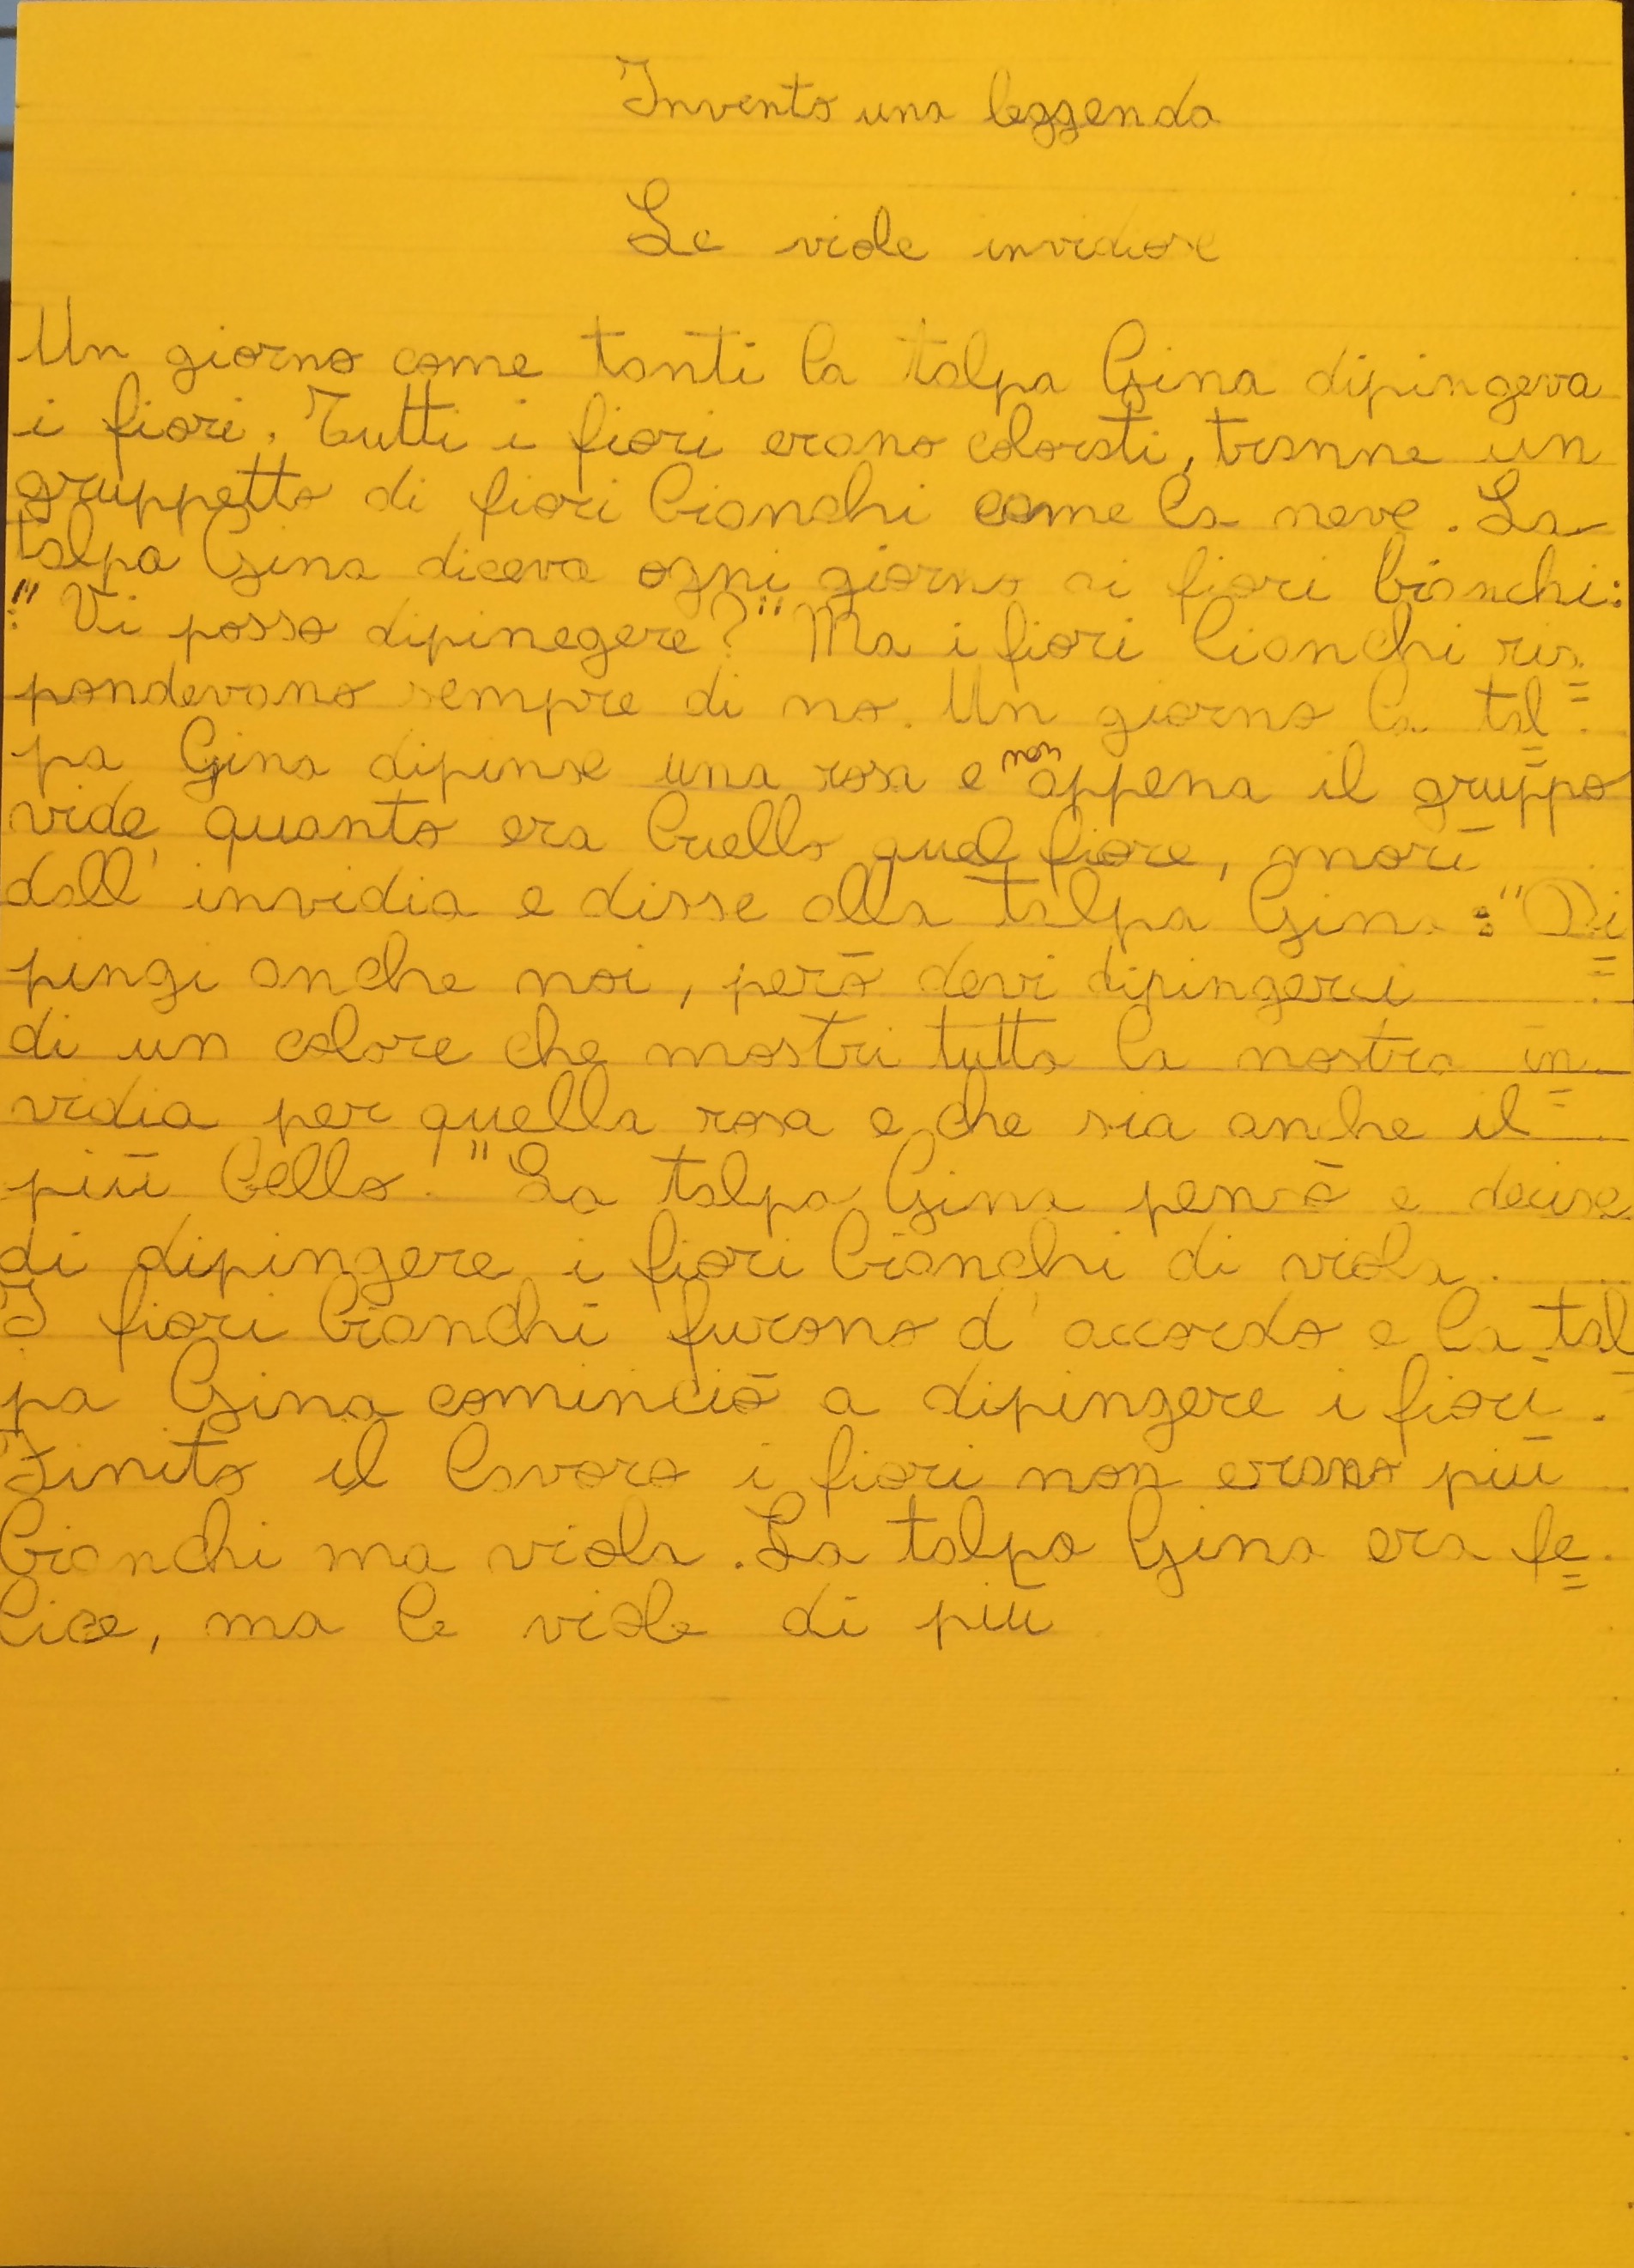 Invento una leggenda
Le viole invidiose
Un giorno come tanti la talpa Gina dipingeva
i fiori. Tutti i fiori erano colorati, tranne un
gruppetto di fiori bianchi come la neve. La
talpa Gina diceva ogni giorno ai fiori bianchi:
:" Vi posso dipinegere?" Ma i fiori bianchi ris=
pondevano sempre di no. Un giorno la tal=
pa Gina dipinse una rosa e non appena il gruppo
vide quanto era buello quel fiore, morì
dall'invidia e disse alla talpa Gina :"Di=
pingi anche noi, però devi dipingerci
di un colore che mostri tutta la nostra in=
vidia per quella rosa e che sia anche il
più bello." La talpa Gina pensò e decise
di dipingere i fiori bianchi di viola.
I fiori bianchi furono d'accordo e la tal=
pa Gina cominciò a dipingere i fiori.
Finito il lavoro i fiori non erano più
bianchi ma viola. La talpa Gina era fe=
lice, ma le viole di più